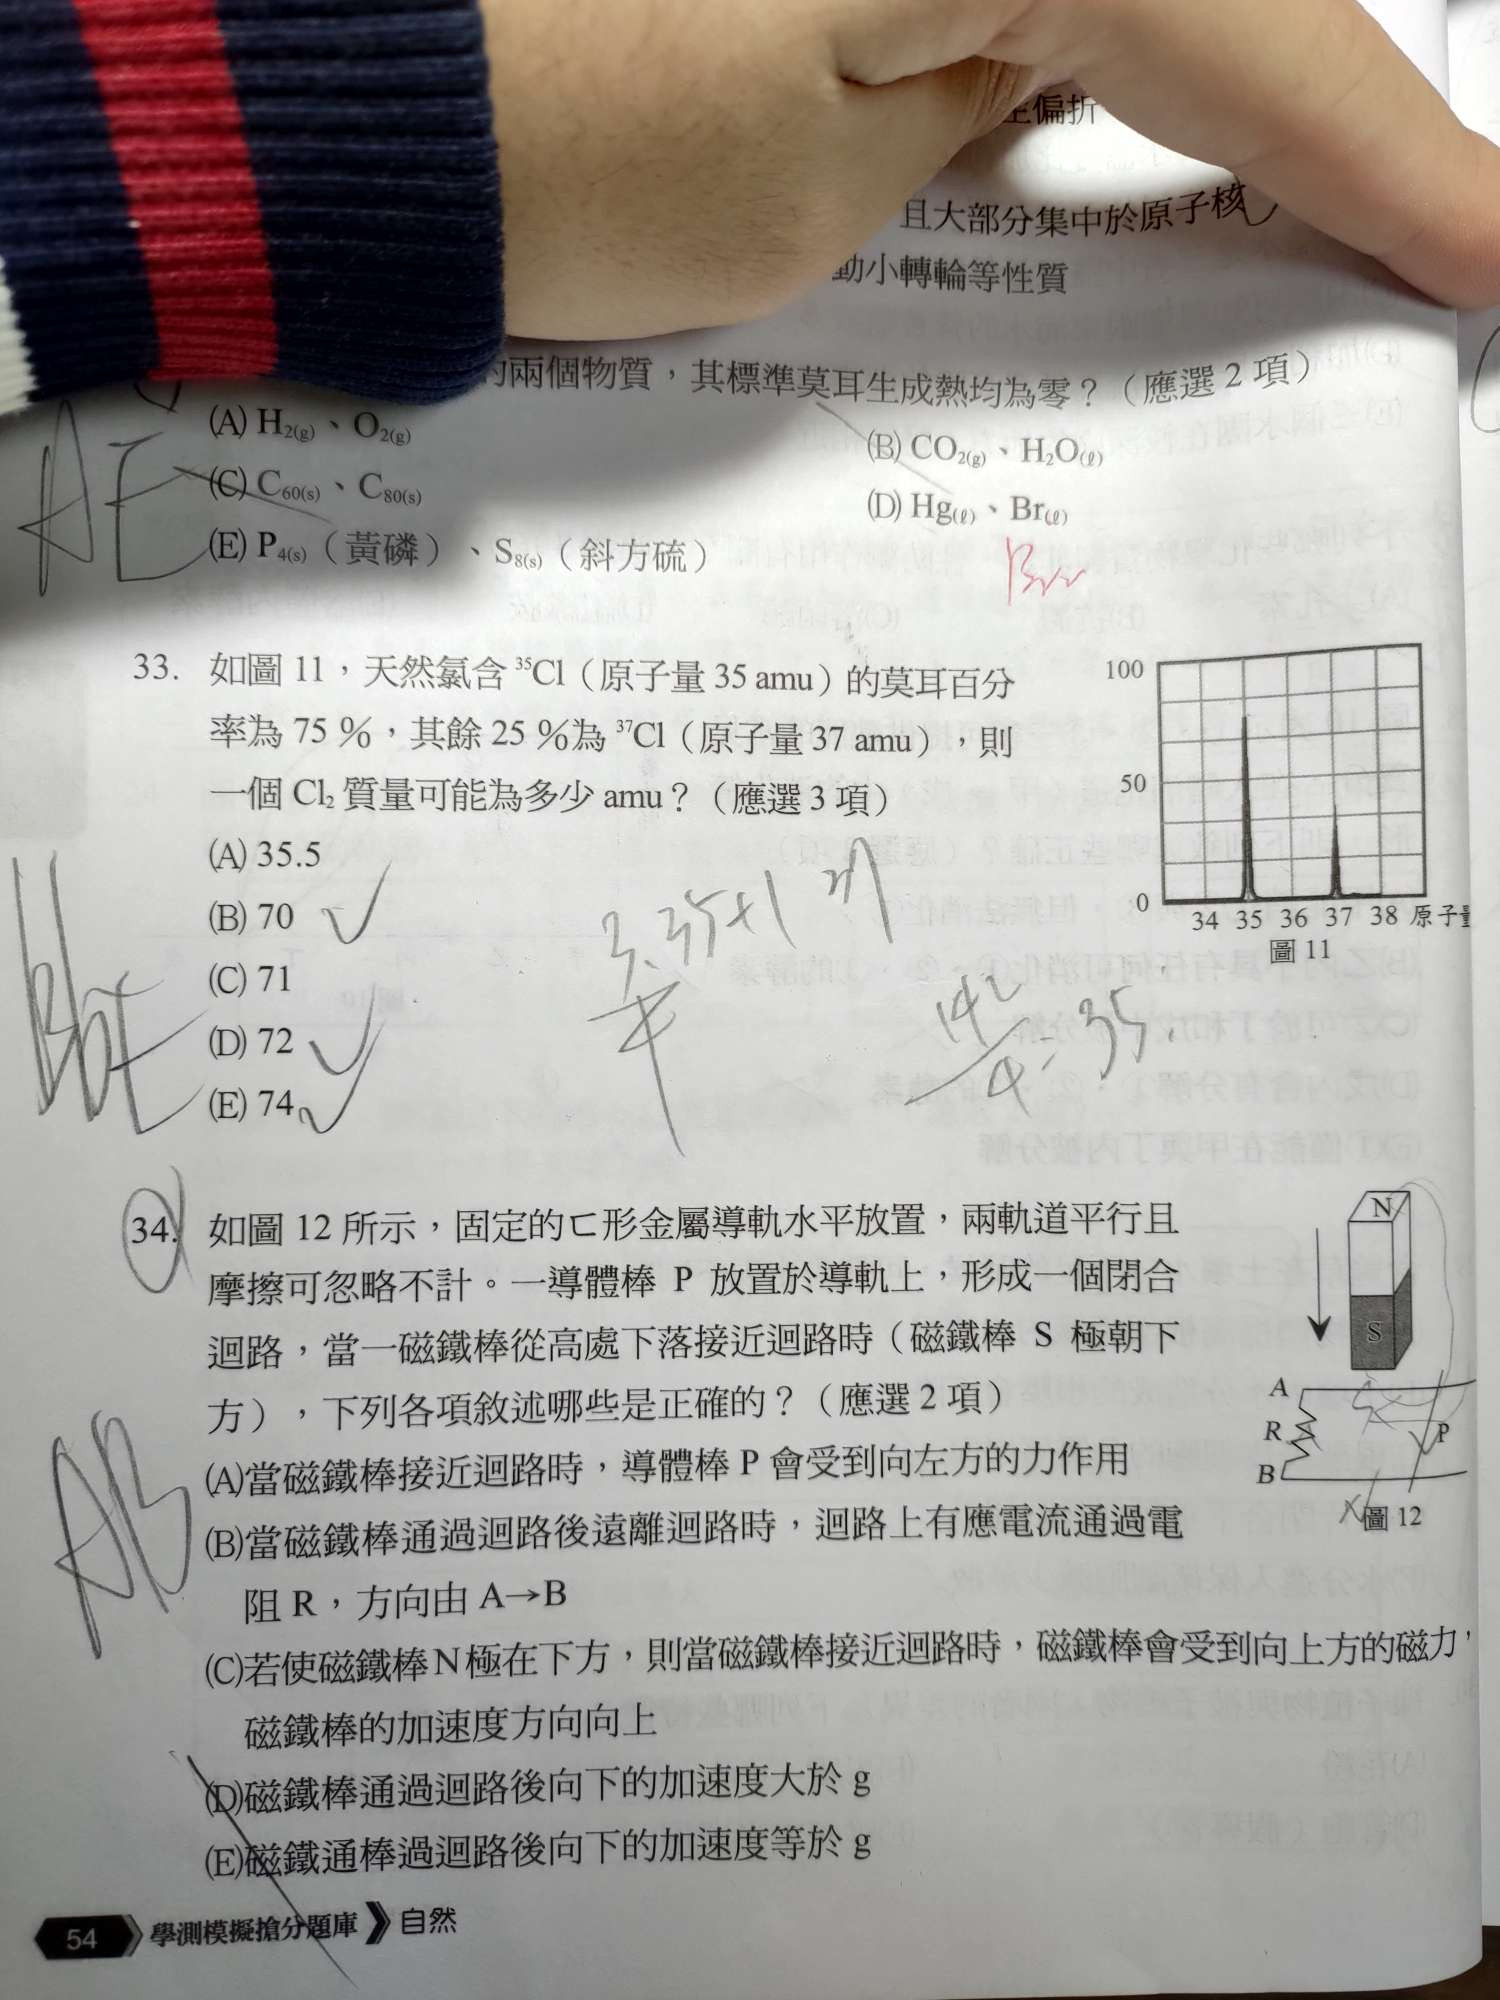 生偏折
且大部分集中於原子核
動小轉輪等性質
的兩個物質，其標準莫耳生成熱均為零？（應選2項）
(A) H₂(g)、O₂(g)
(B) CO₂(g)、H₂O(ℓ)
(C) C₆₀(s)、C₈₀(s)
(D) Hg(ℓ)、Br(ℓ)
(E) P₄(s)（黃磷）、S₈(s)（斜方硫）
AE
33. 如圖 11，天然氯含 ³⁵Cl（原子量 35 amu）的莫耳百分
率為 75 %，其餘 25 %為 ³⁷Cl（原子量 37 amu），則
一個 Cl₂ 質量可能為多少 amu？（應選3項）
(A) 35.5
(B) 70
(C) 71
(D) 72
(E) 74
100
50
0
34 35 36 37 38 原子量
圖 11
34. 如圖 12 所示，固定的ㄈ形金屬導軌水平放置，兩軌道平行且
摩擦可忽略不計。一導體棒 P 放置於導軌上，形成一個閉合
迴路，當一磁鐵棒從高處下落接近迴路時（磁鐵棒 S 極朝下
方），下列各項敘述哪些是正確的？（應選2項）
(A)當磁鐵棒接近迴路時，導體棒 P 會受到向左方的力作用
(B)當磁鐵棒通過迴路後遠離迴路時，迴路上有應電流通過電
阻 R，方向由 A→B
(C)若使磁鐵棒N極在下方，則當磁鐵棒接近迴路時，磁鐵棒會受到向上方的磁力，
磁鐵棒的加速度方向向上
(D)磁鐵棒通過迴路後向下的加速度大於 g
(E)磁鐵通棒過迴路後向下的加速度等於 g
AB
N
S
A
R
P
B
圖 12
54 學測模擬搶分題庫 自然